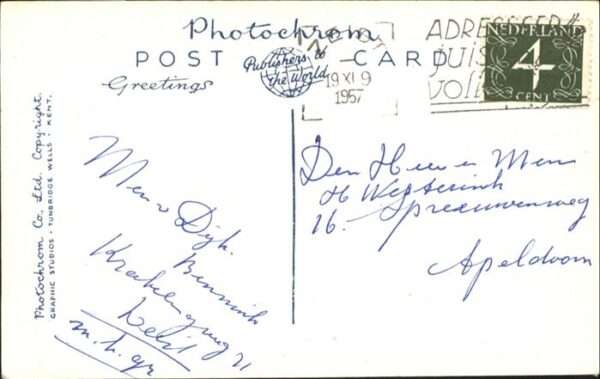 Photochrom
POST CARD
Publishers to
the World
Greetings
19 XI 9
1957
ADRESSEER
JUIS
VOLL
NEDERLAND
4
CENT
Photochrom Co. Ltd. Copyright.
GRAPHIC STUDIOS · TUNBRIDGE WELLS · KENT.
Den Heer en Mevr
H Wesserink
16. Spreeuwenweg
Apeldoorn
Mevr Dijk.
Bennink
Delft
m.h.gr